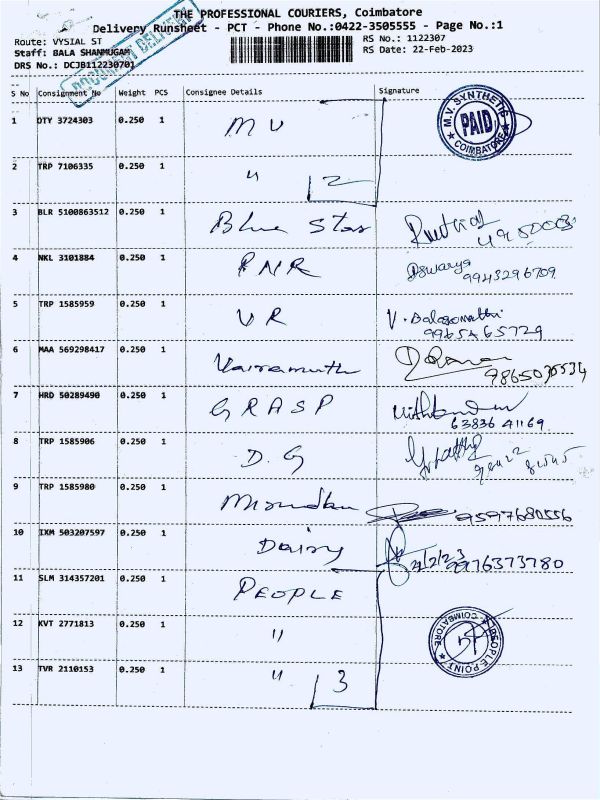 THE PROFESSIONAL COURIERS, Coimbatore
Delivery Runsheet - PCT - Phone No.:0422-3505555 - Page No.:1
Route: VYSIAL ST
RS No.: 1122307
Staff: BALA SHANMUGAM
RS Date: 22-Feb-2023
DRS No.: DCJB112230701
DOCUMENT DELIVERY
S No Consignment No Weight PCS Consignee Details Signature
1 DTY 3724303 0.250 1 M V
M.V. SYNTHETIC PAID COIMBATORE
2 TRP 7106335 0.250 1 " 2
3 BLR 5100863512 0.250 1 Blue Star
4 NKL 3101884 0.250 1 PNR 9943296709
5 TRP 1585959 0.250 1 VR
9965465729
6 MAA 569298417 0.250 1 Vairamuthu
7 HRD 50289490 0.250 1 GRASP
63836 41169
8 TRP 1585906 0.250 1 D. G
9 TRP 1585980 0.250 1 9597680556
10 IXM 503207597 0.250 1 Daisy 9976373780
11 SLM 314357201 0.250 1 PEOPLE
12 KVT 2771813 0.250 1 "
PEOPLE POINT COIMBATORE
13 TVR 2110153 0.250 1 " 3